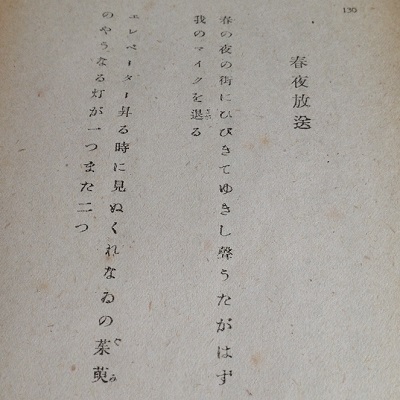 130
春夜放送
春の夜の街にひびきてゆきし聲うたがはず
我のマイクを退る
エレベーター昇る時に見ぬくれなゐの茱萸
のやうなる灯が一つまた二つ